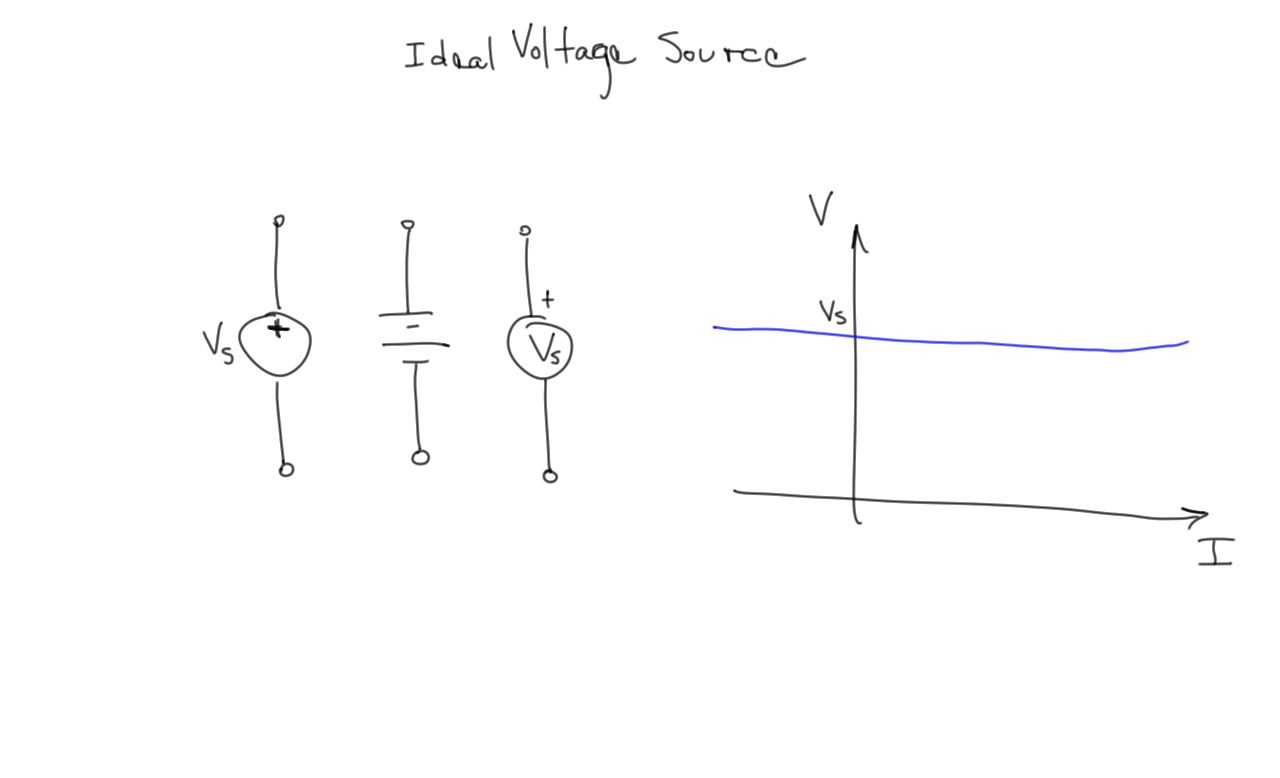 Ideal Voltage Source
V
Vs
+
+
Vs
Vs
I